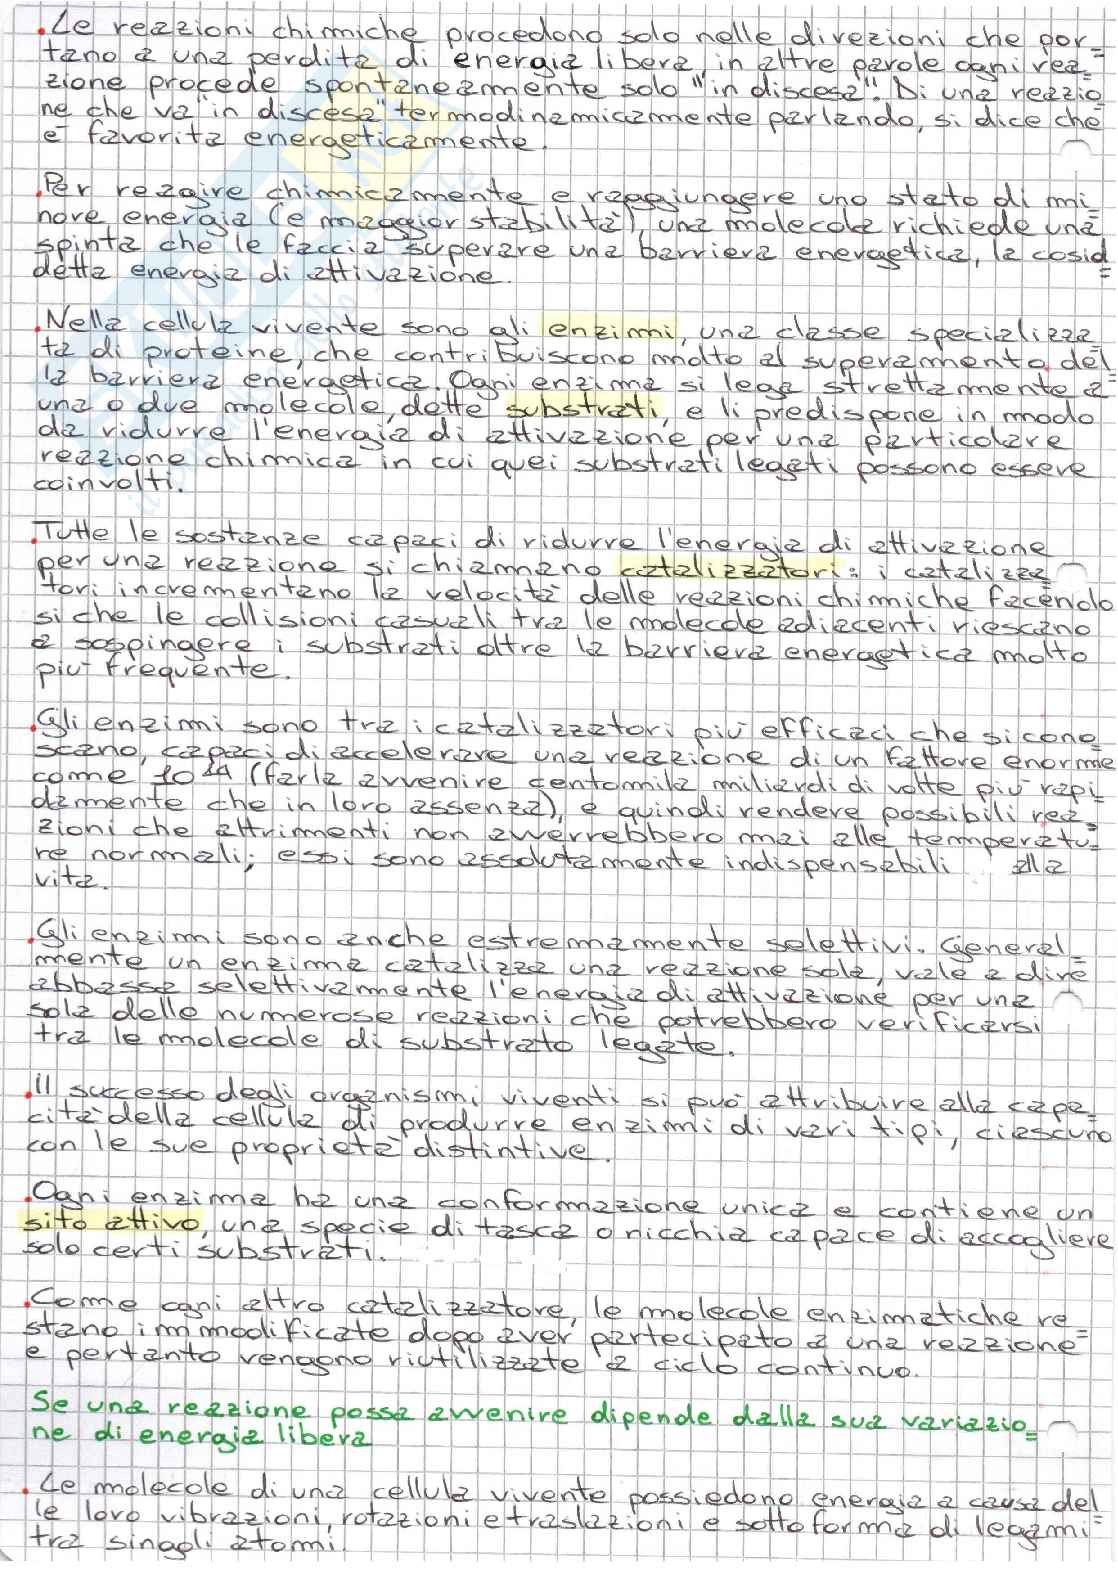 .Le reazioni chimiche procedono solo nelle direzioni che por=
tano a una perdita di energia libera, in altre parole ogni rea=
zione procede spontaneamente solo "in discesa". Di una reazio
ne che va "in discesa" termodinamicamente parlando, si dice che
e' favorita energeticamente.
.Per reagire chimicamente e raggiungere uno stato di mi
nore energia (e maggior stabilità), una molecola richiede una
spinta che le faccia superare una barriera energetica, la cosid
detta energia di attivazione.
.Nella cellula vivente sono gli enzimi, una classe specializza=
ta di proteine, che contribuiscono molto al superamento del
la barriera energetica. Ogni enzima si lega strettamente a
una o due molecole, dette substrati, e li predispone in modo
da ridurre l'energia di attivazione per una particolare
reazione chimica in cui quei substrati legati possono essere
coinvolti.
.Tutte le sostanze capaci di ridurre l'energia di attivazione
per una reazione si chiamano catalizzatori: i catalizza=
tori incrementano la velocità delle reazioni chimiche facendo
si che le collisioni casuali tra le molecole adiacenti riescano
a sospingere i substrati oltre la barriera energetica molto
piu' frequente.
.Gli enzimi sono tra i catalizzatori piu' efficaci che si cono=
scano, capaci di accelerare una reazione di un fattore enorme
come 10¹⁴ (farla avvenire centomila miliardi di volte piu' rapi
damente che in loro assenza), e quindi rendere possibili rea=
zioni che altrimenti non avverrebbero mai alle temperatu=
re normali; essi sono assolutamente indispensabili alla
vita.
.Gli enzimi sono anche estremamente selettivi. General=
mente un enzima catalizza una reazione sola, vale a dire
abbassa selettivamente l'energia di attivazione per una
sola delle numerose reazioni che potrebbero verificarsi
tra le molecole di substrato legate.
.Il successo degli organismi viventi si può attribuire alla capa=
cità della cellula di produrre enzimi di vari tipi, ciascuno
con le sue proprietà distintive.
.Ogni enzima ha una conformazione unica e contiene un
sito attivo, una specie di tasca o nicchia capace di accogliere
solo certi substrati.
.Come ogni altro catalizzatore, le molecole enzimatiche re
stano immodificate dopo aver partecipato a una reazione=
e pertanto vengono riutilizzate a ciclo continuo.
Se una reazione possa avvenire dipende dalla sua variazio=
ne di energia libera
.Le molecole di una cellula vivente possiedono energia a causa del
le loro vibrazioni, rotazioni e traslazioni e sotto forma di legami=
tra singoli atomi.